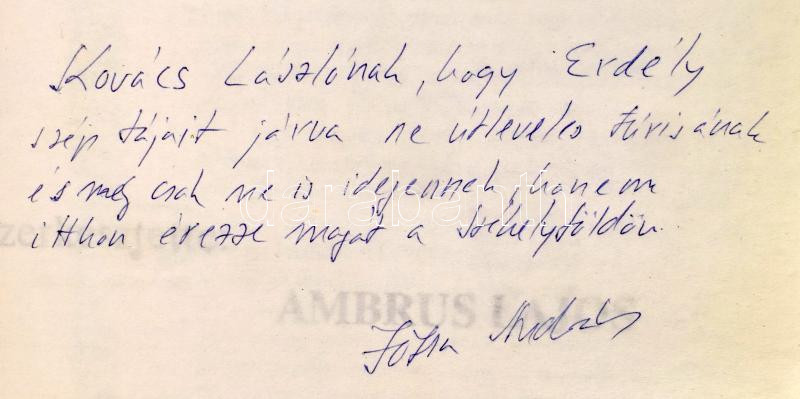 Kovács Lászlónak, hogy Erdély
szép tájait járva ne útleveles túristának
és még csak ne is idegennek, hanem
itthon érezze magát a Székelyföldön.
AMBRUS LAJOS
András
darabanth